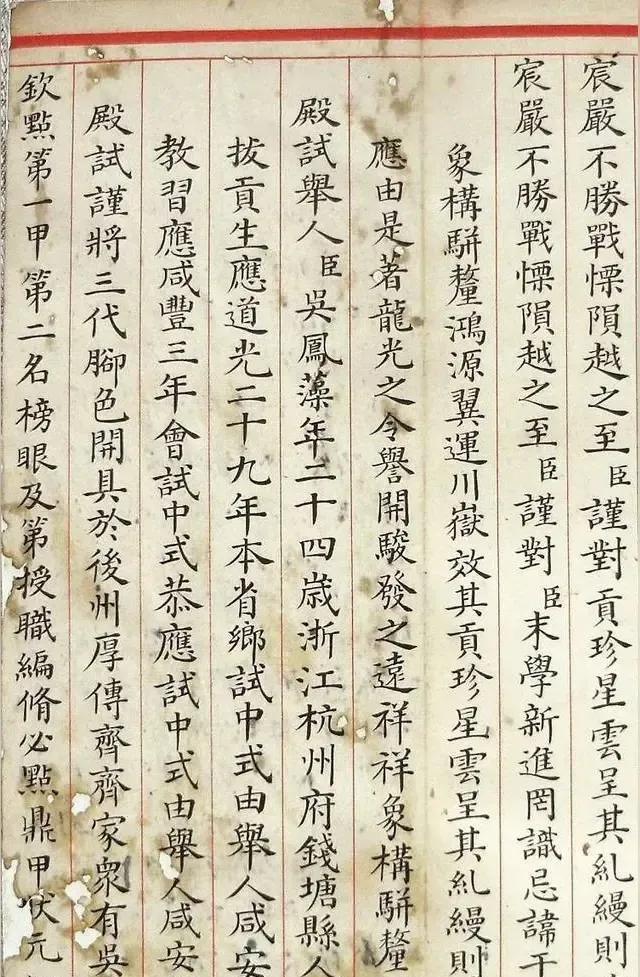 宸嚴不勝戰慄隕越之至臣謹對貢珍星雲呈其糺縵則
宸嚴不勝戰慄隕越之至臣謹對臣末學新進罔識忌諱干
象構駢釐鴻源翼運川嶽效其貢珍星雲呈其糺縵則
應由是著龍光之令譽開駿發之遠祥祥象構駢釐
殿試舉人臣吳鳳藻年二十四歲浙江杭州府錢塘縣人
拔貢生應道光二十九年本省鄉試中式由舉人咸安
教習應咸豐三年會試中式恭應試中式由舉人咸安
殿試謹將三代腳色開具於後州厚傳齊齊家衆有吳
欽點第一甲第二名榜眼及第授職編脩必點鼎甲狀元